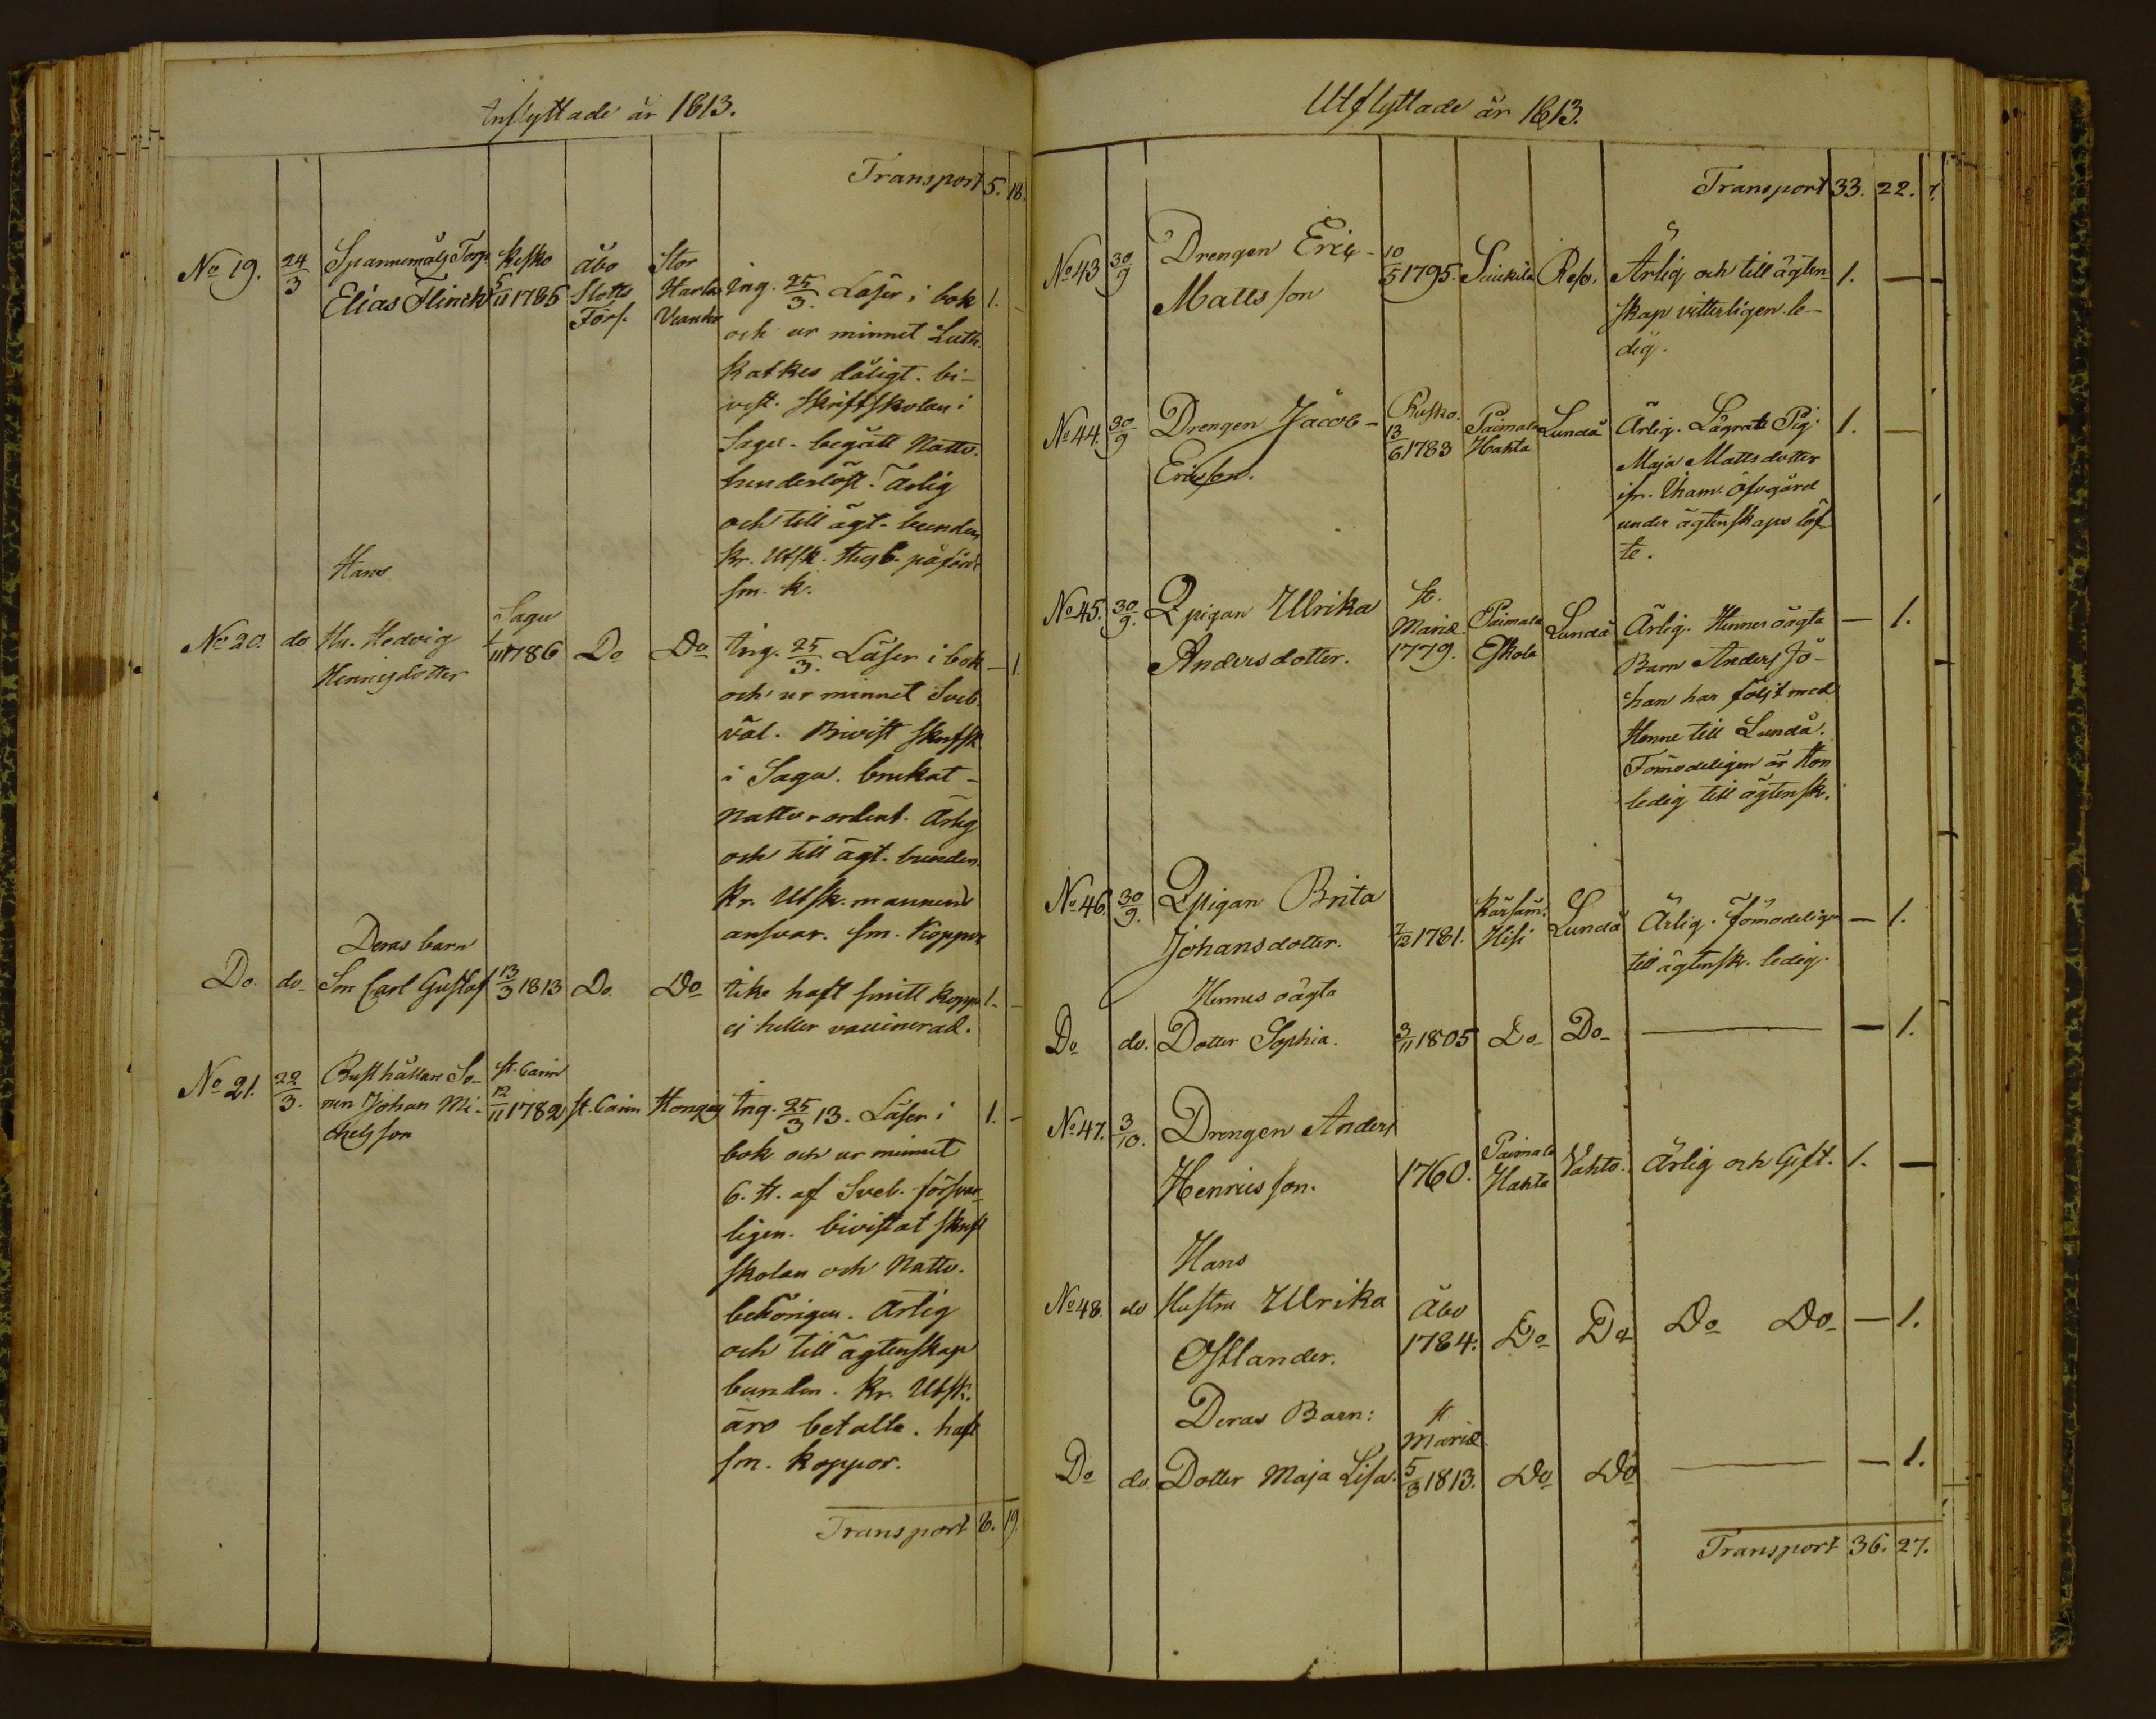 Inflyttade år 1813.
Transport 5. 18.
No 19. 24/3 Spannemåls Torp. Kesko Åbo Stor
Elias Flinck 5/11 1785 Slotts Harla Ing. 25/3. Läser i bok 1. -
Förs.
och ur minnet Luth.
Katkes dåligt. bi-
vist. Skriftskolan i
Sagu. begått Nattv.
hinderlöst. Ärlig
och till ägt. bunden
Kr. Utsk. Husb. påförde
sm. k.
Hans Sagu
No 20. do Hu. Hedvig 1/11 1786 Do Do Ing. 25/3. Läser i bok - 1.
Henrigsdotter
och ur minnet Sveb.
väl. Bivist Skriftsk.
i Sagu. brukat
Nattv. ordent. Ärlig
och till ägt. bunden.
Kr. Utsk. mannens
ansvar. sm. Koppor
Deras barn
Do. do. Son Carl Gustaf 13/3 1813 Do. Do icke haft smitt koppor 1. -
ej heller vaccinerad.
No 21. 22/3. Rusthållare So- st. Carin
nen Johan Mi- 12/11 1782 st. Carin Ing. 25/3 13. Läser i 1. -
chelsson
bok och ur minnet
6. H. af Sveb. försvar-
ligen. bivistat Skrift
skolan och Nattv.
behörigen. Ärlig
och till ägtenskap
bunden. Kr. Utsk.
äro betalte. haft
sm. Koppor.
Transport 6. 19.
Utflyttade år 1813.
Transport 33. 22. 1.
No 43 30/9 Drengen Eric 10/5 1795. Suikila Reso. Ärlig och till ägten- 1. -
Mattsson skap vitterligen le-
dig.
No 44. 30/9 Drengen Jacob Rusko. 13/6 1783 Paimala Hahta Lundå Ärlig. Lägrat Pig. 1. -
Ericsson. Maja Mattsdotter
ifr. Öfvergård
under ägtenskaps löf-
te.
No 45. 30/9. Qpigan Ulrika St. Mariæ 1779. Paimala Eskola Lundå Ärlig. Hennes oägta - 1.
Andersdotter. Barn Anders Jo-
han har följt med
Henne till Lundå.
Förmodeligen är Hon
ledig till ägtensk.
No 46. 30/9. Qpigan Brita
Johansdotter. 7/12 1781. Kärsäm. Hisi Lundå Ärlig. förmodeligen - 1.
till ägtensk. ledig.
Hennes oägta
Do do. Dotter Sophia. 3/11 1805 Do Do - - 1.
No 47. 3/10. Drengen Anders
Henricsson. 1760. Paimala Hahta Vahto. Ärlig och Gift. 1. -
Hans
No 48. do Hustru Ulrika Åbo
Ostlander. 1784. Do Do Do Do - 1.
Deras Barn: St Mariæ
Do do. Dotter Maja Lisa. 5/3 1813. Do Do - - 1.
Transport 36. 27.